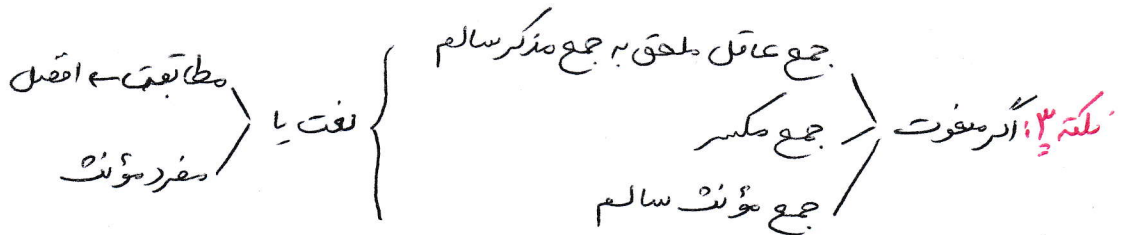 نکته ۳: اگر منعوت
جمع عاقل ملحق به جمع مذکر سالم
جمع مکسر
جمع مؤنث سالم
نعت یا
مطابقت ← افضل
مفرد مؤنث